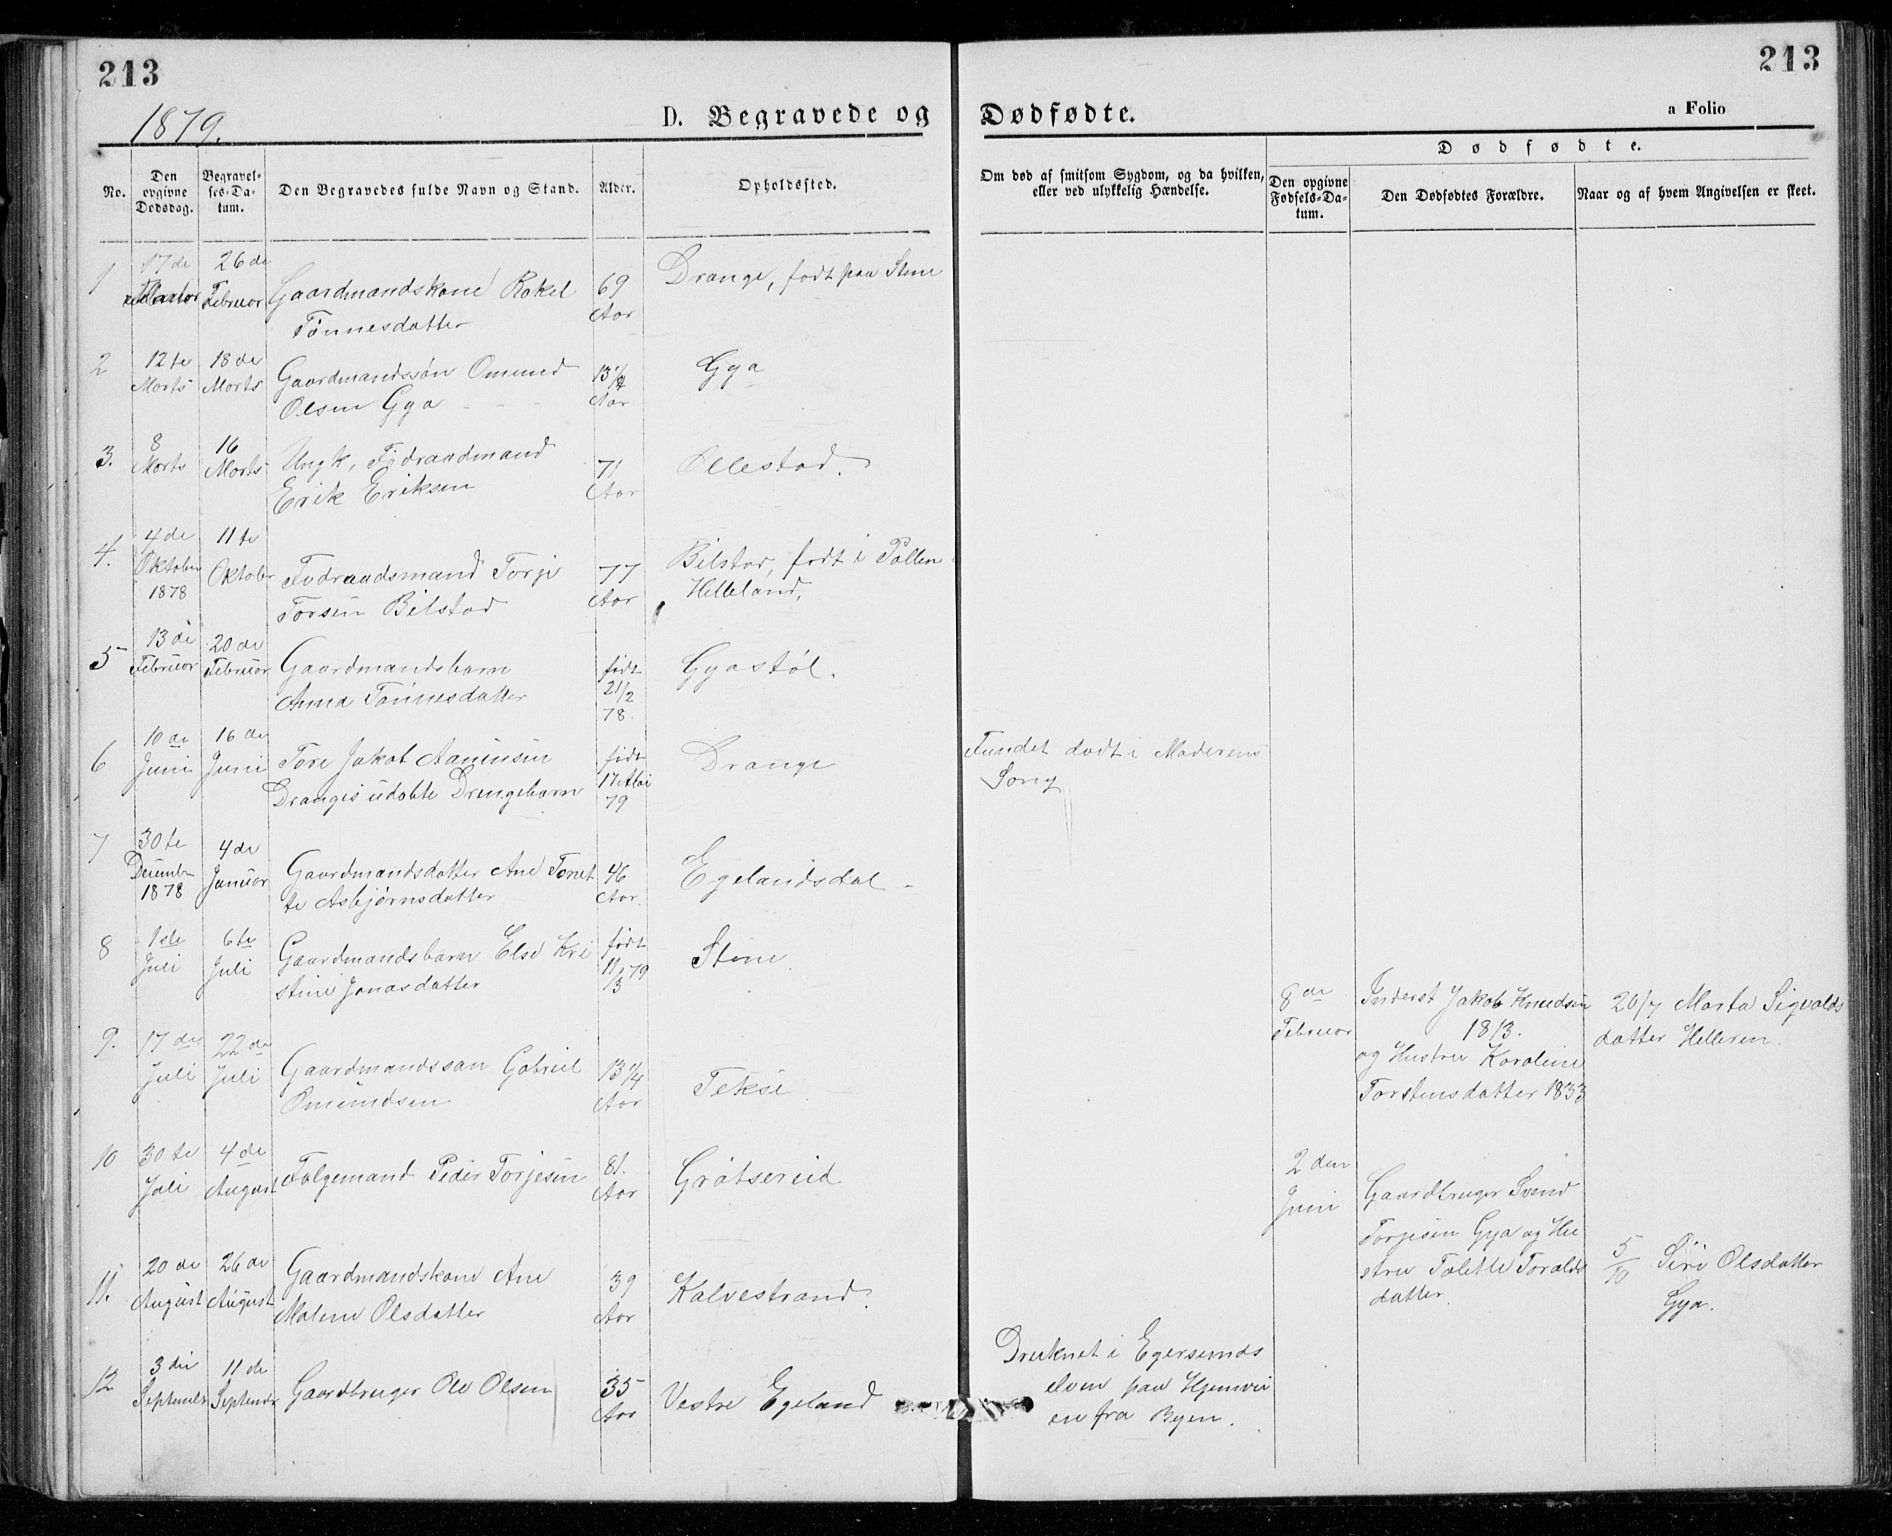 213
213
1879.
D. Begravede og Dødfødte.
a Folio
No.
Den opgivne Dødsdag.
Begravelses-Datum.
Den Begravedes fulde Navn og Stand.
Alder.
Opholdssted.
Om død af smitsom Sygdom, og da hvilken, eller ved ulykkelig Hændelse.
Dødfødte.
Den opgivne Fødsels-Datum.
Den Dødfødtes Forældre.
Naar og af hvem Angivelsen er skeet.
1
17de
26de Februar
Gaardmandskone Rakel
Tønnesdatter
69 Aar
Drange, født paa Stene
2
12te Marts
18de Marts
Gaardmandssøn Omund
Olsen Gya
13 1/2 Aar
Gya
3.
8 Marts
16 Marts
Ungk, Fødraadmand
Erik Eriksen
71 Aar
Ollestad.
4.
4de Oktober 1878
11te Oktober
Fødraadsmand Torje
Torsen Bilstad
77 Aar
Bilstad, født i Pollen
Helleland.
5
13de Februar
20de Februar
Gaardmandsbarn
Anna Tønnesdatter
født 21/2 78.
Gyastøl.
6
10de Juni
16de Juni
Tore Jakob Aanensen
Dranges udøbte Drengebarn
født 17 Mai 79
Drange
Fundet dødt i Moderens
Seng
7
30te December 1878
4de Januar
Gaardmandsdatter Ane Tonet
te Asbjørnsdatter
46 Aar
Egelandsdal
8
1ste Juli
6te Juli
Gaardmandsbarn Else Kri
stine Jonasdatter
født 11/3 79
Stene
8de Februar
Inderst Jakob Knudsen
1813.
og Hustru Karoline
Torstensdatter 1833
20/7 Marta Sigvalds
datter Helleren.
9.
17de Juli
22de Juli
Gaardmandssøn Gabriel
Omundsen
13 1/4 Aar
Tekse
10
30te Juli
4de August
Følgemand Peder Torjesen
81. Aar
Grøtsereid
2den Juni
Gaardbruger Svend
Torjesen Gya og Hu
stru Tolette Toralds
datter.
5/10 Siri Olsdatter
Gya.
11.
20de August
26de August
Gaardmandskone Ane
Malene Olsdatter
39 Aar
Kalvestrand.
12
3die September
11de September
Gaardbruger Ole Olsen
35 Aar
Vestre Egeland
Druknet i Egersunds
elven paa Hjemvei
en fra Byen.